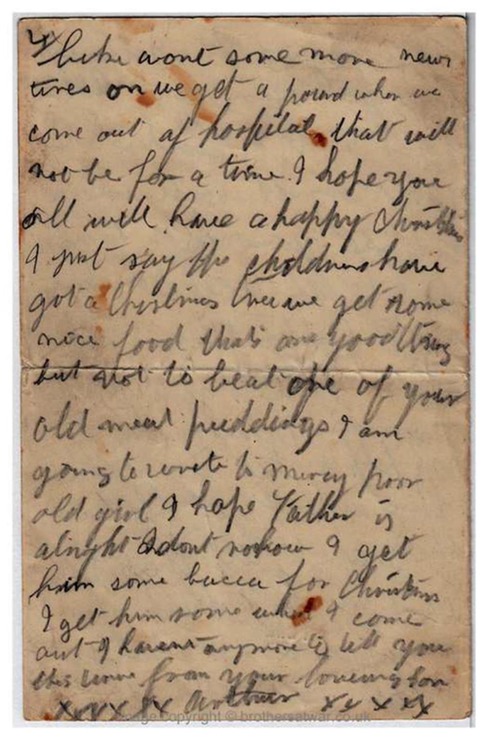 like wont some more new
ones on we get a pound when we
come out of hospital, that will
not be for a time. I hope you
all will have a happy Christmas
I just say the childrens have
got a Christmas tree we get some
nice food thats one good thing
but not to beat one of your
old meat puddings I am
going to write to Mercy poor
old girl I hope Father is
alright I dont I get
him some bacca for Christms
I get him some when I come
out I havent anymore to tell you
this time from your loveing Son
Arthur
copyright © brothersatwar.co.uk